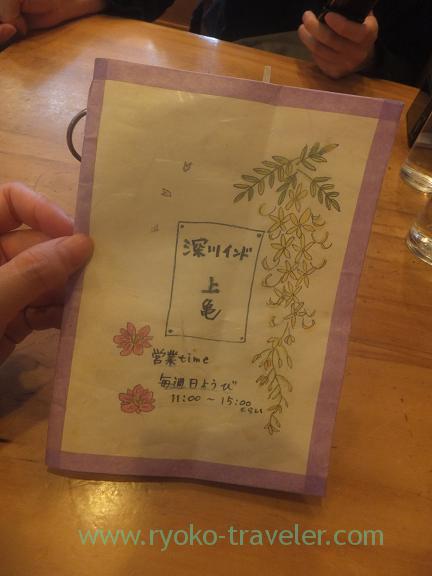 深川インド
上
亀
営業time
毎週日ようび
11:00～15:00
くらい
www.ryoko-traveler.com